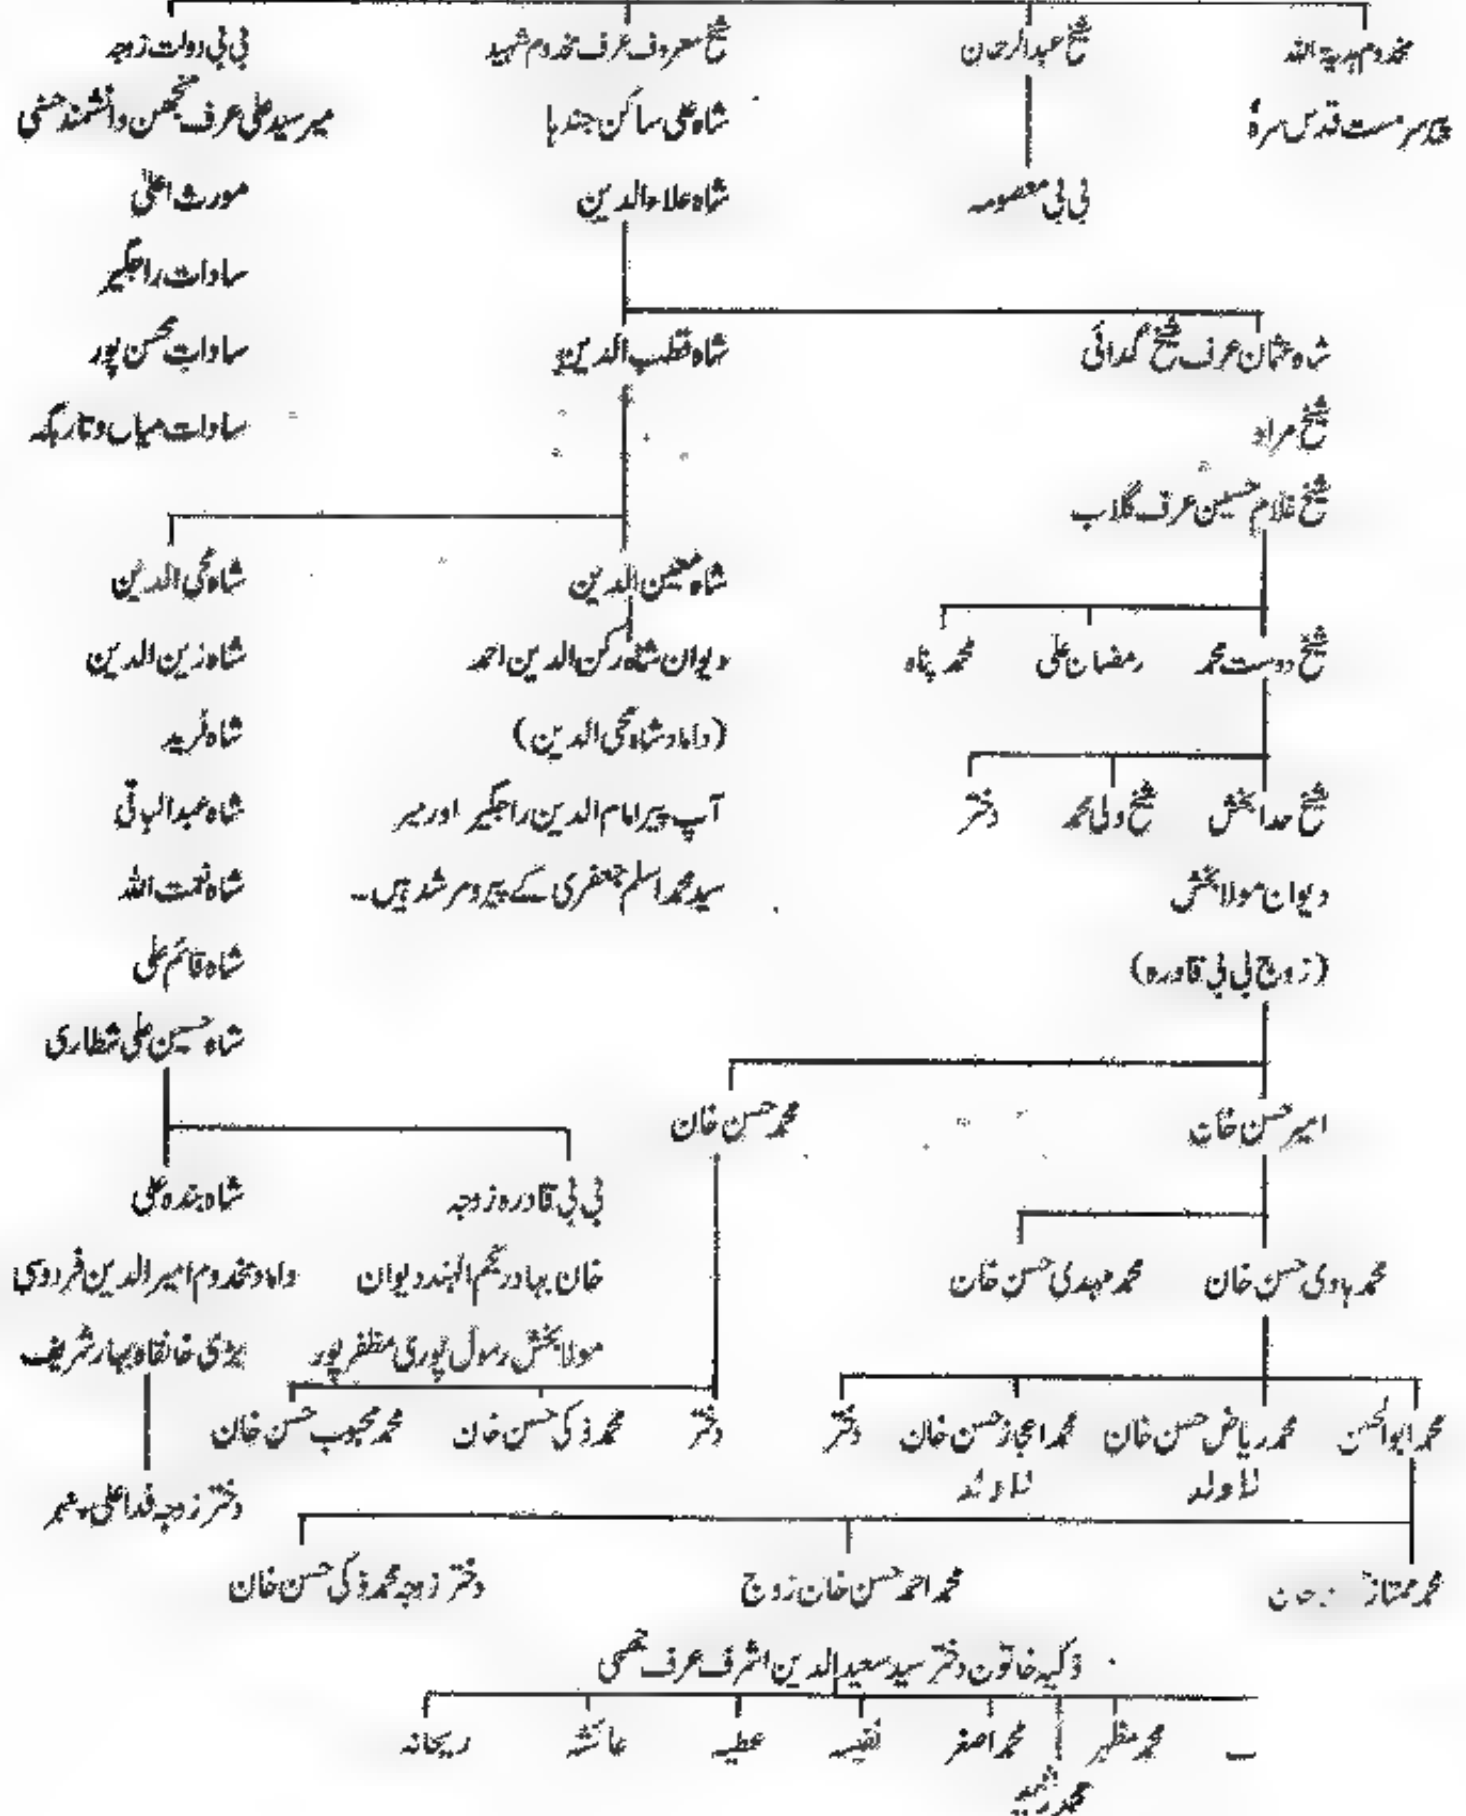 مخدوم ہدیۃ اللہ
پیر سرمست قدس سرہٗ
شیخ عبدالرحمان
بی بی معصومہ
شیخ معروف عرف مخدوم شہید
شاہ علی ساکن جندہا
شاہ علاءالدین
بی بی دولت زوجہ
میر سید علی عرف منجھن دانشمند حسنی
مورث اعلیٰ
سادات راجگیر
سادات محسن پور
سادات میاں و تار بگہ
شاہ عثمان عرف شیخ گدائی
شیخ مراد
شیخ غلام حسین عرف گلاب
شاہ قطب الدین
شیخ دوست محمد
رمضان علی
محمد پناہ
شاہ معین الدین
دیوان شاہ رکن الدین احمد
(داماد شاہ محی الدین)
آپ پیر امام الدین راجگیر اور میر
سید محمد اسلم جعفری کے پیرومرشد ہیں۔
شاہ محی الدین
شاہ زین الدین
شاہ فرید
شاہ عبدالباقی
شاہ نعمت اللہ
شاہ قائم علی
شاہ حسین علی شطاری
شیخ خدا بخش
شیخ ولی محمد
دختر
دیوان مولا بخش
(زوج بی بی قادرہ)
امیر حسن خان
محمد حسن خان
بی بی قادرہ زوجہ
خان بہادر نجم الہند دیوان
مولا بخش رسول پوری مظفر پور
شاہ بندہ علی
داماد مخدوم امیر الدین فردوسی
بڑی خانقاہ بہار شریف
دختر زوجہ فدا علی
محمد ہادی حسن خان
محمد مہدی حسن خان
محمد ابوالحسن
محمد ریاض حسن خان
لا ولد
محمد اعجاز حسن خان
لا ولد
دختر
دختر
محمد ذکی حسن خان
محمد محبوب حسن خان
محمد ممتاز
محمد احمد حسن خان زوج
دختر زوجہ محمد ذکی حسن خان
ذکیہ خاتون دختر سید سعید الدین اشرف عرف چھمی
محمد مظہر
محمد اصغر
نفیسہ
عطیہ
عائشہ
ریحانہ